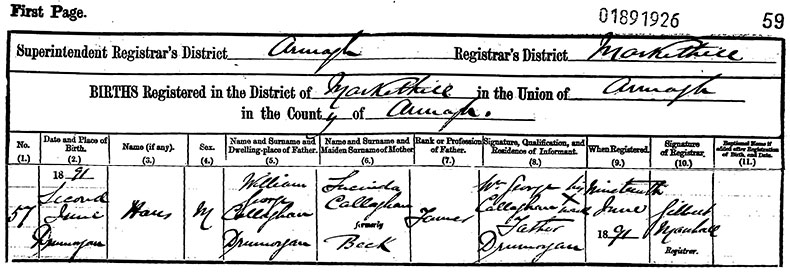 First Page. 01891926 59
Superintendent Registrar's District Armagh Registrar's District Markethill
BIRTHS Registered in the District of Markethill in the Union of Armagh
in the County of Armagh.
No. (1.)
Date and Place of Birth. (2.)
Name (if any). (3.)
Sex. (4.)
Name and Surname and Dwelling-place of Father. (5.)
Name and Surname and Maiden Surname of Mother (6.)
Rank or Profession of Father. (7.)
Signature, Qualification, and Residence of Informant. (8.)
When Registered. (9.)
Signature of Registrar. (10.)
Baptismal Name if added after Registration of Birth, and Date. (11.)
57
1891
Second
June
Drumorgan
Hans
M
William
George
Callaghan
Drumorgan
Lucinda
Callaghan
formerly
Beck
Farmer
Wm George
Callaghan X
Father
Drumorgan
Nineteenth
June
1891
Gilbert
Marshall
Registrar.